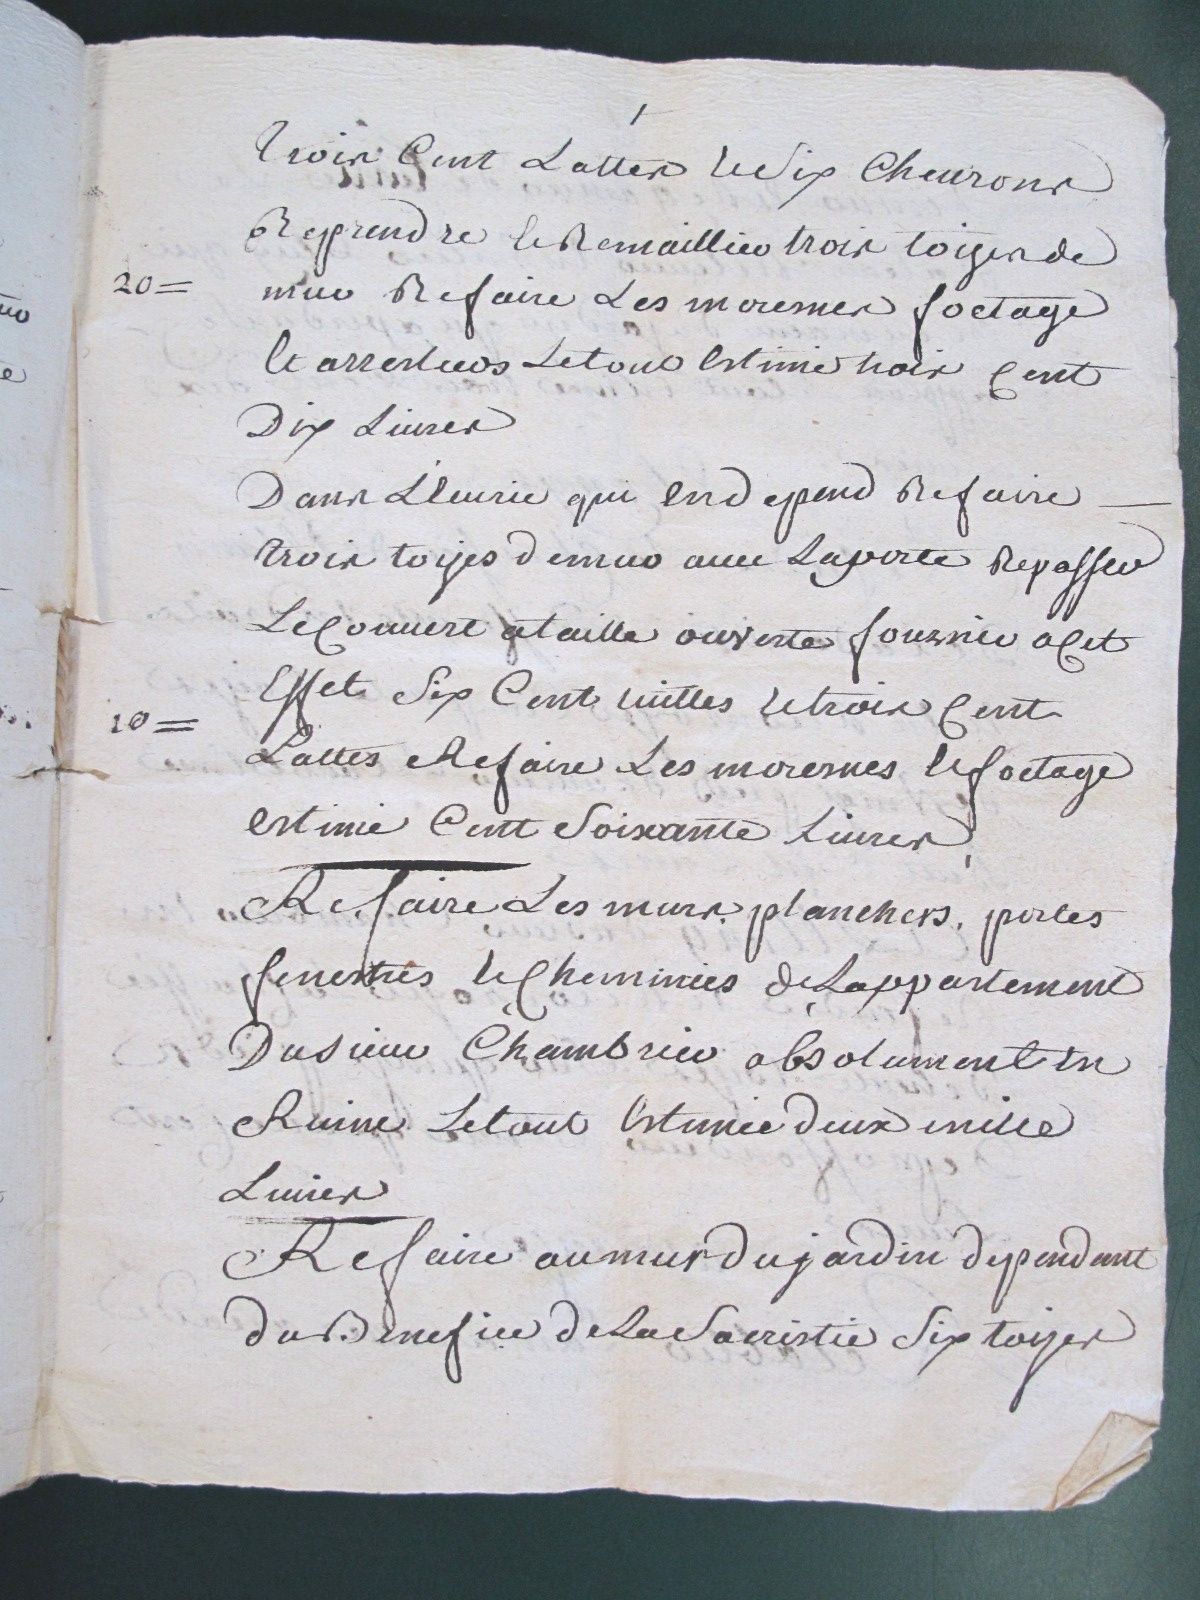 trois Cent Lattes et Six Cheurons
Reprendre et Remaillier trois toizes de
20= mur Refaire Les moresnes foetage
et arrestiers Le tout Estimé trois Cent
Dix Liures
Dans L'Eurie qui En depend Refaire
trois toizes de mur auec La porte Repasser
Le Couuert a taille ouverte fournir a Cet
Effet Six Cent tuilles et trois Cent
10= Lattes Refaire Les moresnes et foetage
Estimé Cent Soixante Liures
Refaire Les murs planchers, portes
fenestres et Cheminées de Lappartement
Du Sieur Chambrier absolument En
Ruine Le tout Estimée deux mille
Liures
Refaire au mur Du jardin dependant
du Benefice de La Sacristie Six toizes